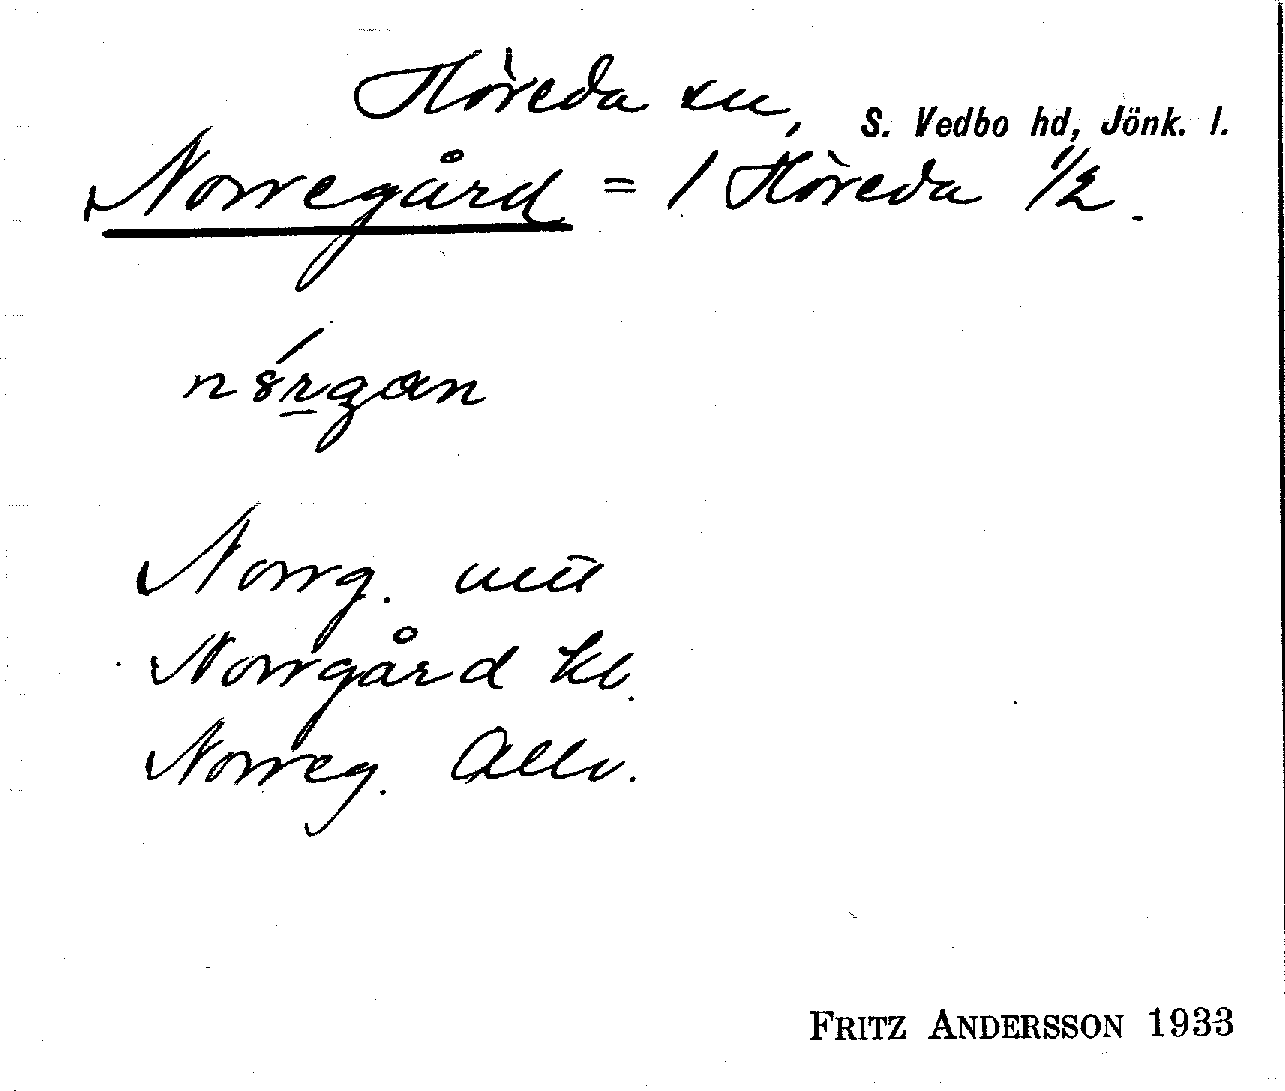 Höreda sn, S. Vedbo hd, Jönk. l.
Norregård = 1 Höreda 1/2.
Norrg. utt
Norrgård kl.
Norreg. Allv.
FRITZ ANDERSSON 1933